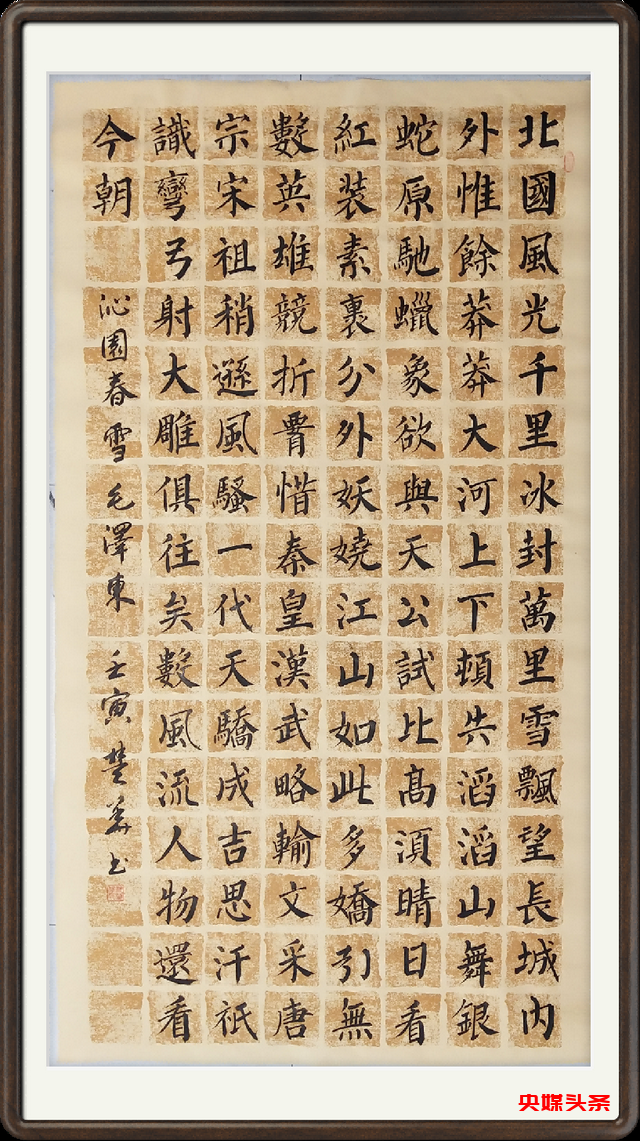 北國風光千里冰封萬里雪飄望長城內
外惟餘莽莽大河上下頓失滔滔山舞銀
蛇原馳蠟象欲與天公試比高須晴日看
紅裝素裹分外妖嬈江山如此多嬌引無
數英雄競折腰惜秦皇漢武略輸文采唐
宗宋祖稍遜風騷一代天驕成吉思汗祇
識彎弓射大雕俱往矣數風流人物還看
今朝 沁園春雪毛澤東 壬寅楚書
央媒头条